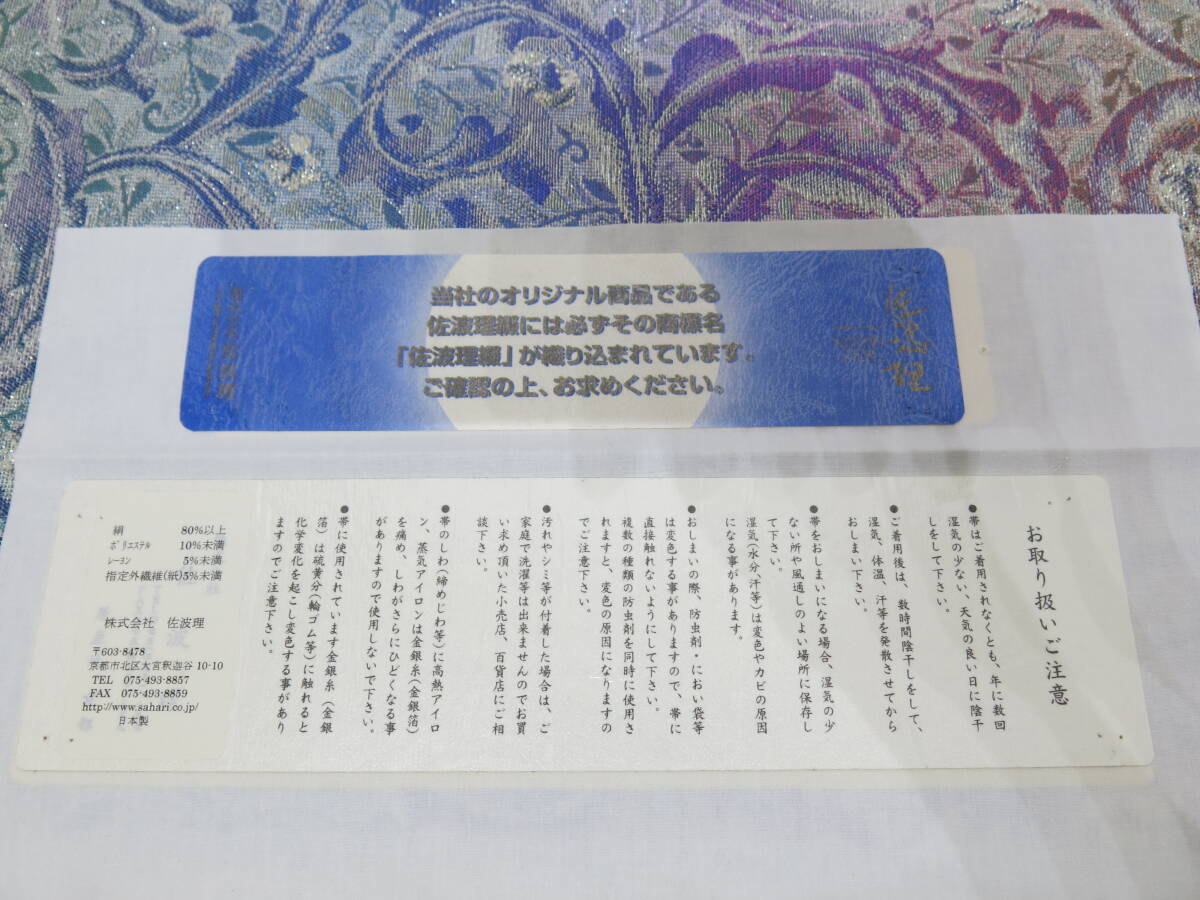 当社のオリジナル商品である
佐波理綴には必ずその商標名
「佐波理綴」が織り込まれています。
ご確認の上、お求めください。
佐波理
お取り扱いご注意
●帯はご着用されなくとも、年に数回
湿気の少ない、天気の良い日に陰干
しをして下さい。
●ご着用後は、数時間陰干しをして、
湿気、体温、汗等を発散させてから
おしまい下さい。
●帯をおしまいになる場合、湿気の少
ない所や風通しのよい場所に保存し
て下さい。
湿気（水分、汗等）は変色やカビの原因
になる事があります。
●おしまいの際、防虫剤・におい袋等
は変色する事がありますので、帯に
直接触れないようにして下さい。
複数の種類の防虫剤を同時に使用さ
れますと、変色の原因になりますの
でご注意下さい。
●汚れやシミ等が付着した場合は、ご
家庭で洗濯等は出来ませんのでお買
い求め頂いた小売店、百貨店にご相
談下さい。
●帯のしわ（締めじわ等）に高熱アイロ
ン、蒸気アイロンは金銀糸（金銀箔）
を痛め、しわがさらにひどくなる事
がありますので使用しないで下さい。
●帯に使用されています金銀糸（金銀
箔）は硫黄分（輪ゴム等）に触れると
化学変化を起こし変色する事があり
ますのでご注意下さい。
絹 80%以上
ポリエステル 10%未満
レーヨン 5%未満
指定外繊維(紙)5%未満
株式会社 佐波理
〒603-8478
京都市北区大宮釈迦谷 10-10
TEL 075-493-8857
FAX 075-493-8859
http://www.sahari.co.jp/
日本製